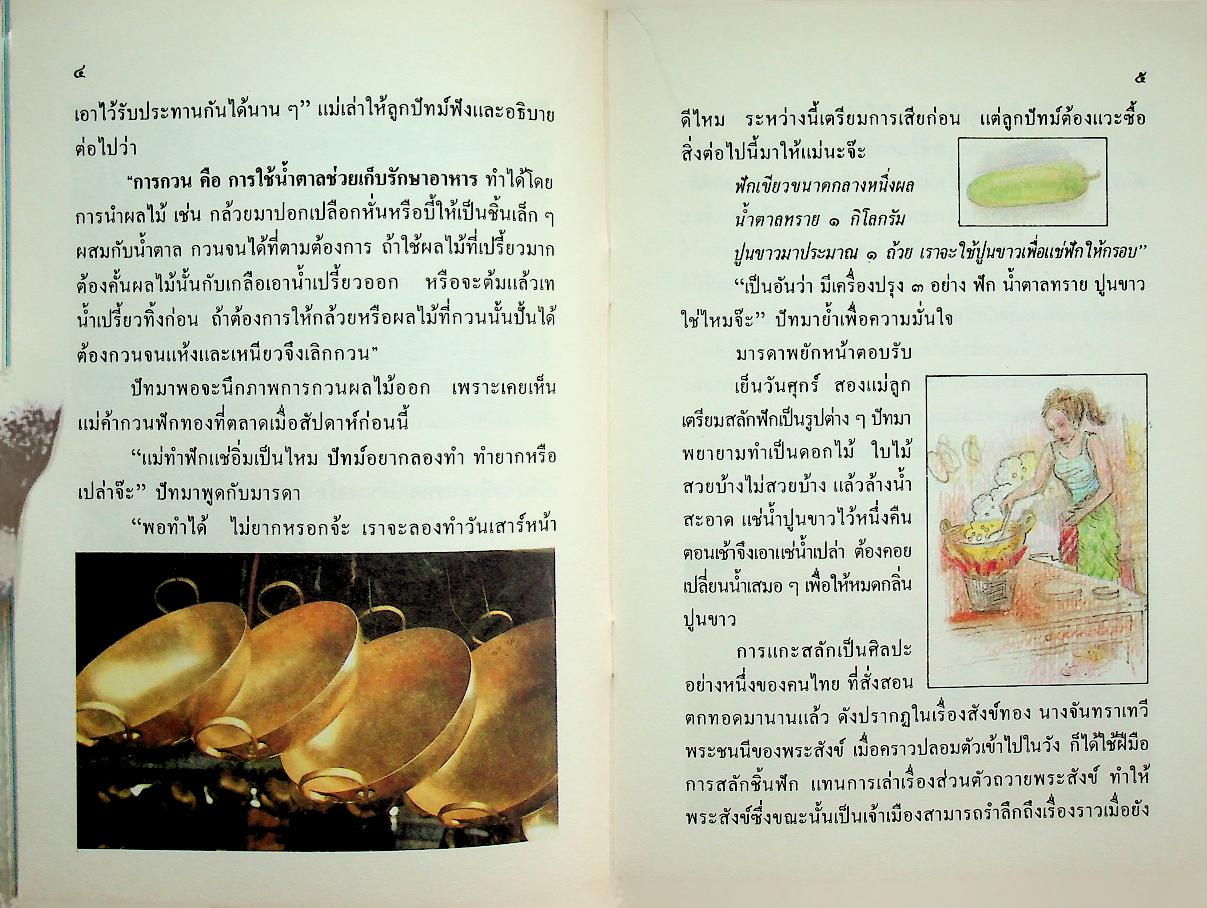 ๔
เอาไว้รับประทานกันได้นาน ๆ” แม่เล่าให้ลูกปัทม์ฟังและอธิบาย
ต่อไปว่า
“การกวน คือ การใช้น้ำตาลช่วยเก็บรักษาอาหาร ทำได้โดย
การนำผลไม้ เช่น กล้วยมาปอกเปลือกหั่นหรือบี้ให้เป็นชิ้นเล็ก ๆ
ผสมกับน้ำตาล กวนจนได้ที่ตามต้องการ ถ้าใช้ผลไม้ที่เปรี้ยวมาก
ต้องคั้นผลไม้นั้นกับเกลือเอาน้ำเปรี้ยวออก หรือจะต้มแล้วเท
น้ำเปรี้ยวทิ้งก่อน ถ้าต้องการให้กล้วยหรือผลไม้ที่กวนนั้นปั้นได้
ต้องกวนจนแห้งและเหนียวจึงเลิกกวน”
ปัทมาพอจะนึกภาพการกวนผลไม้ออก เพราะเคยเห็น
แม่ค้ากวนฟักทองที่ตลาดเมื่อสัปดาห์ก่อนนี้
“แม่ทำฟักแช่อิ่มเป็นไหม ปัทม์อยากลองทำ ทำยากหรือ
เปล่าจ๊ะ” ปัทมาพูดกับมารดา
“พอทำได้ ไม่ยากหรอกจ้ะ เราจะลองทำวันเสาร์หน้า
๕
ดีไหม ระหว่างนี้เตรียมการเสียก่อน แต่ลูกปัทม์ต้องแวะซื้อ
สิ่งต่อไปนี้มาให้แม่นะจ๊ะ
ฟักเขียวขนาดกลางหนึ่งผล
น้ำตาลทราย ๑ กิโลกรัม
ปูนขาวมาประมาณ ๑ ถ้วย เราจะใช้ปูนขาวเพื่อแช่ฟักให้กรอบ”
“เป็นอันว่า มีเครื่องปรุง ๓ อย่าง ฟัก น้ำตาลทราย ปูนขาว
ใช่ไหมจ๊ะ” ปัทมาย้ำเพื่อความมั่นใจ
มารดาพยักหน้าตอบรับ
เย็นวันศุกร์ สองแม่ลูก
เตรียมสลักฟักเป็นรูปต่าง ๆ ปัทมา
พยายามทำเป็นดอกไม้ ใบไม้
สวยบ้างไม่สวยบ้าง แล้วล้างน้ำ
สะอาด แช่น้ำปูนขาวไว้หนึ่งคืน
ตอนเช้าจึงเอาแช่น้ำเปล่า ต้องคอย
เปลี่ยนน้ำเสมอ ๆ เพื่อให้หมดกลิ่น
ปูนขาว
การแกะสลักเป็นศิลปะ
อย่างหนึ่งของคนไทย ที่สั่งสอน
ตกทอดมานานแล้ว ดังปรากฏในเรื่องสังข์ทอง นางจันทราเทวี
พระชนนีของพระสังข์ เมื่อคราวปลอมตัวเข้าไปในวัง ก็ได้ใช้ฝีมือ
การสลักชิ้นฟัก แทนการเล่าเรื่องส่วนตัวถวายพระสังข์ ทำให้
พระสังข์ซึ่งขณะนั้นเป็นเจ้าเมืองสามารถรำลึกถึงเรื่องราวเมื่อยัง